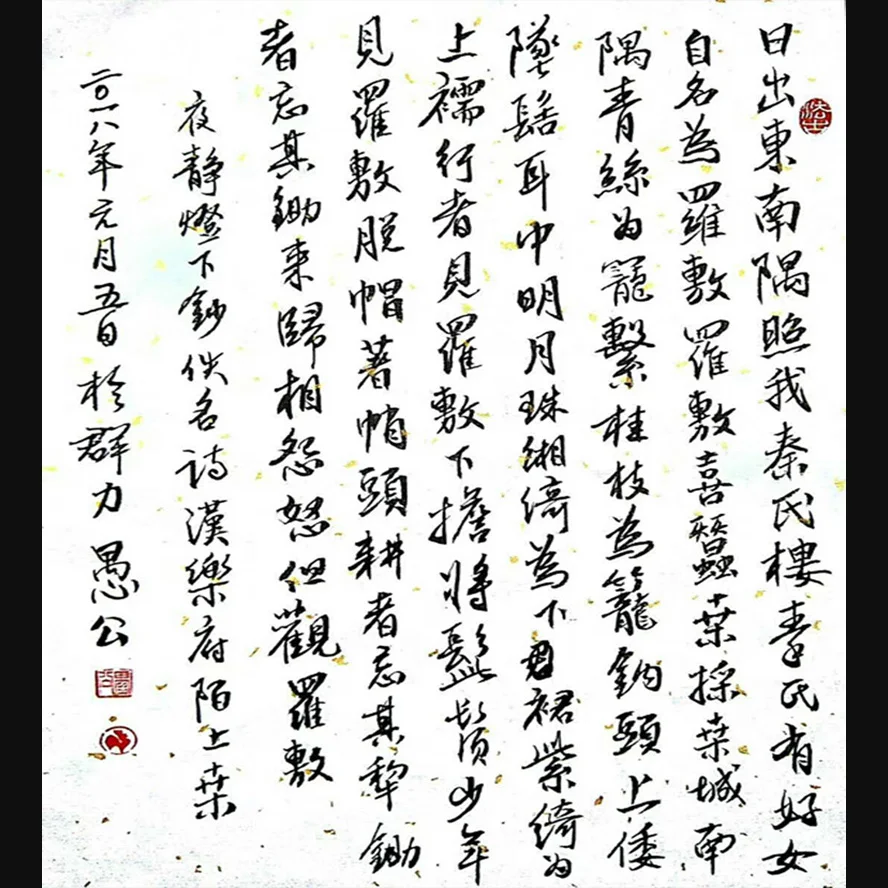 日出東南隅照我秦氏樓秦氏有好女
自名為羅敷羅敷喜蠶桒採桒城南
隅青絲為籠繫桂枝為籠鉤頭上倭
墮髻耳中明月珠緗綺為下裙紫綺為
上襦行者見羅敷下擔將髭鬚少年
見羅敷脱帽著帩頭耕者忘其犂鋤
者忘其鋤來歸相怨怒但觀羅敷
夜靜燈下鈔佚名詩漢樂府陌上桒
二〇一八年元月五日於群力愚公